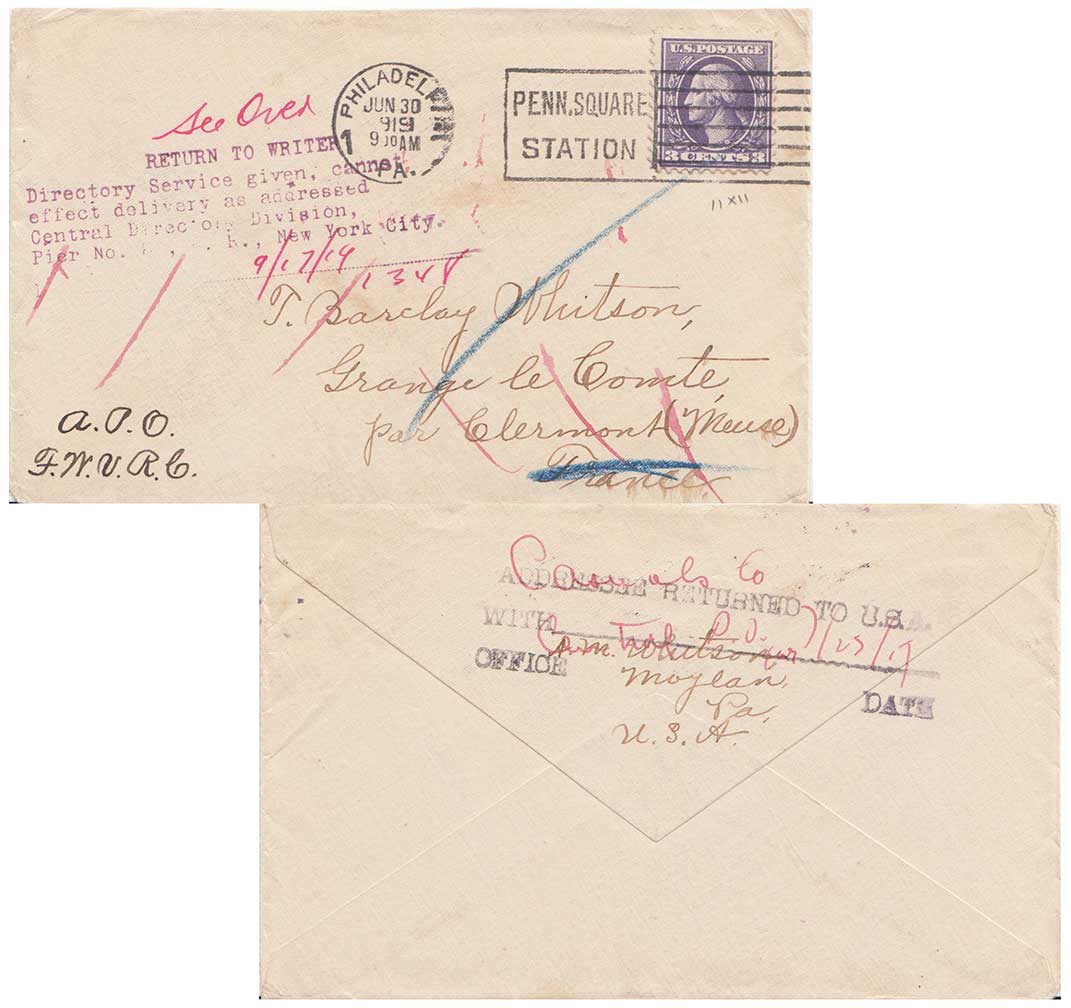 See Over
RETURN TO WRITER
Directory Service given, cannot
effect delivery as addressed
Central Directory Division,
Pier No. R., New York City.
9/17/19 1348
PHILADELPHIA
JUN 30
1919
9 00 AM
PA.
1
PENN. SQUARE
STATION
U.S. POSTAGE
3 CENTS 3
11 XII
T. Barclay Whitson,
Grange le Comte
par Clermont (Meuse)
France
A.P.O.
F.W.V.R.C.
Casuals Co
ADDRESSEE RETURNED TO U.S.A.
WITH P.O. 7/23/19
OFFICE DATE
A. M. Whitson
Moylan,
Pa,
U. S. A.